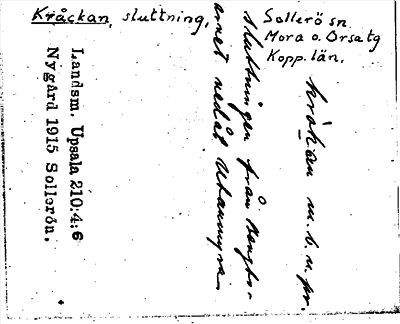 Kråckan, sluttning,
Sollerö sn.
Mora o. Orsa tg
Kopp. län.
kròkan m. b. u. pr.
sluttningen från
ornet nedåt Utanmyra.
Landsm. Upsala 210:4:6
Nygård 1915 Sollerön.